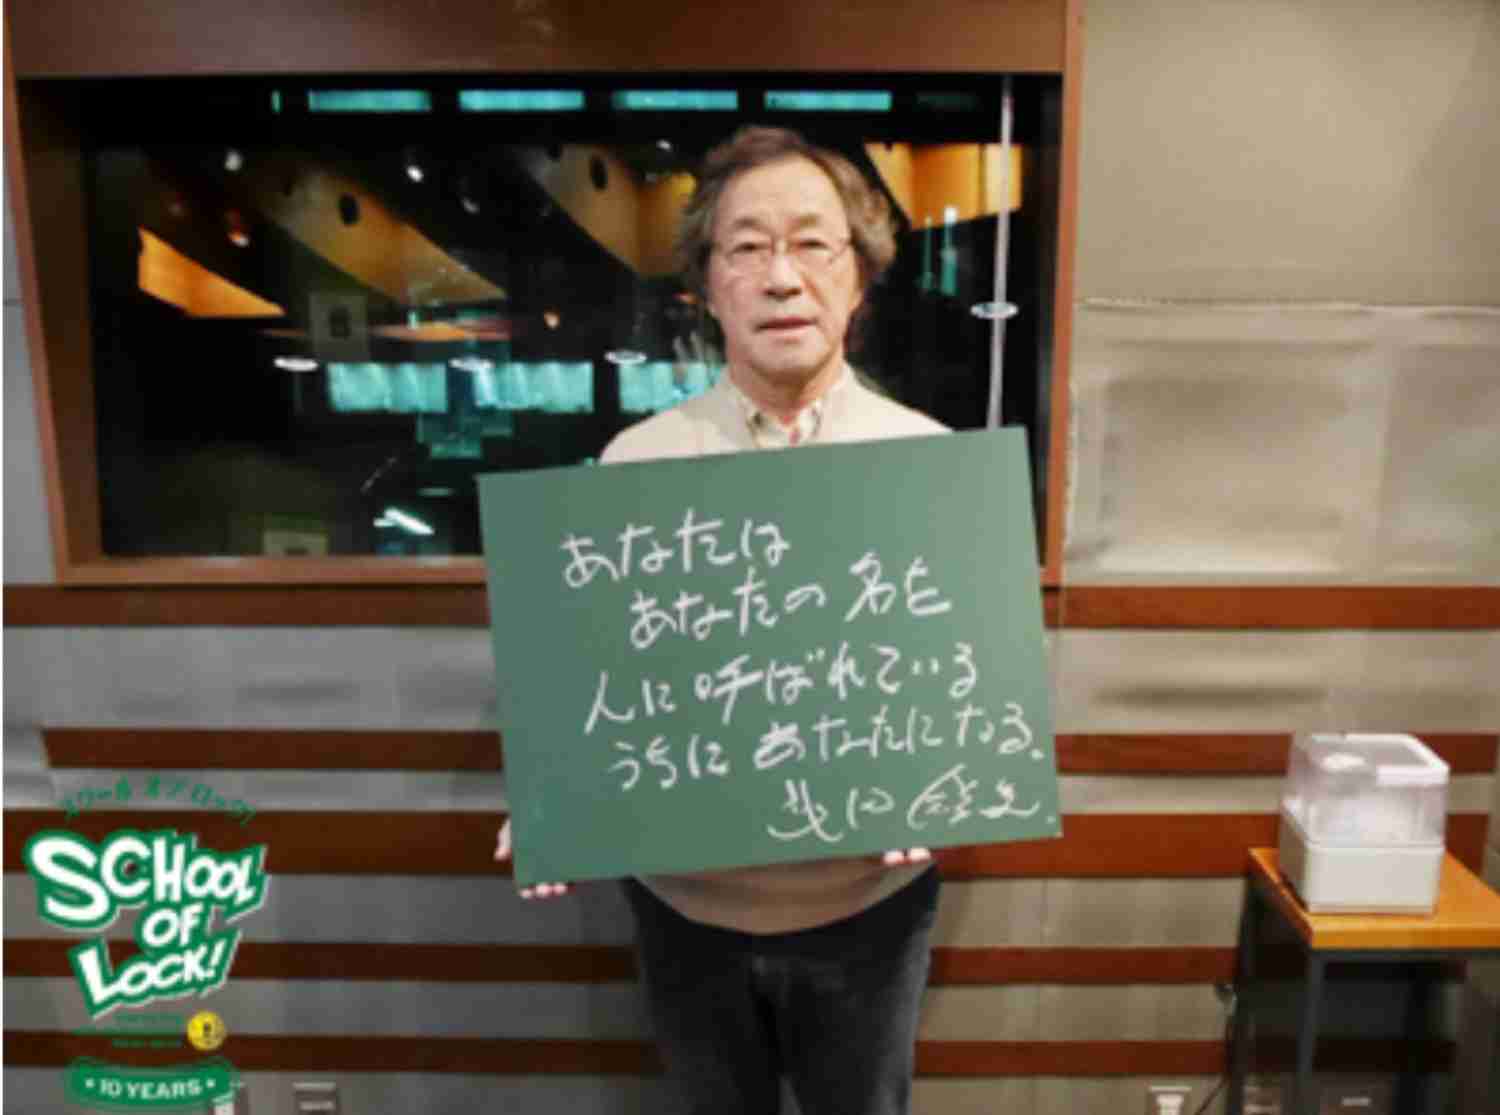 あなたは
あなたの名を
人に呼ばれている
うちにあなたになる。
スクール オブ ロック!
SCHOOL
OF
LOCK!
・10 YEARS・